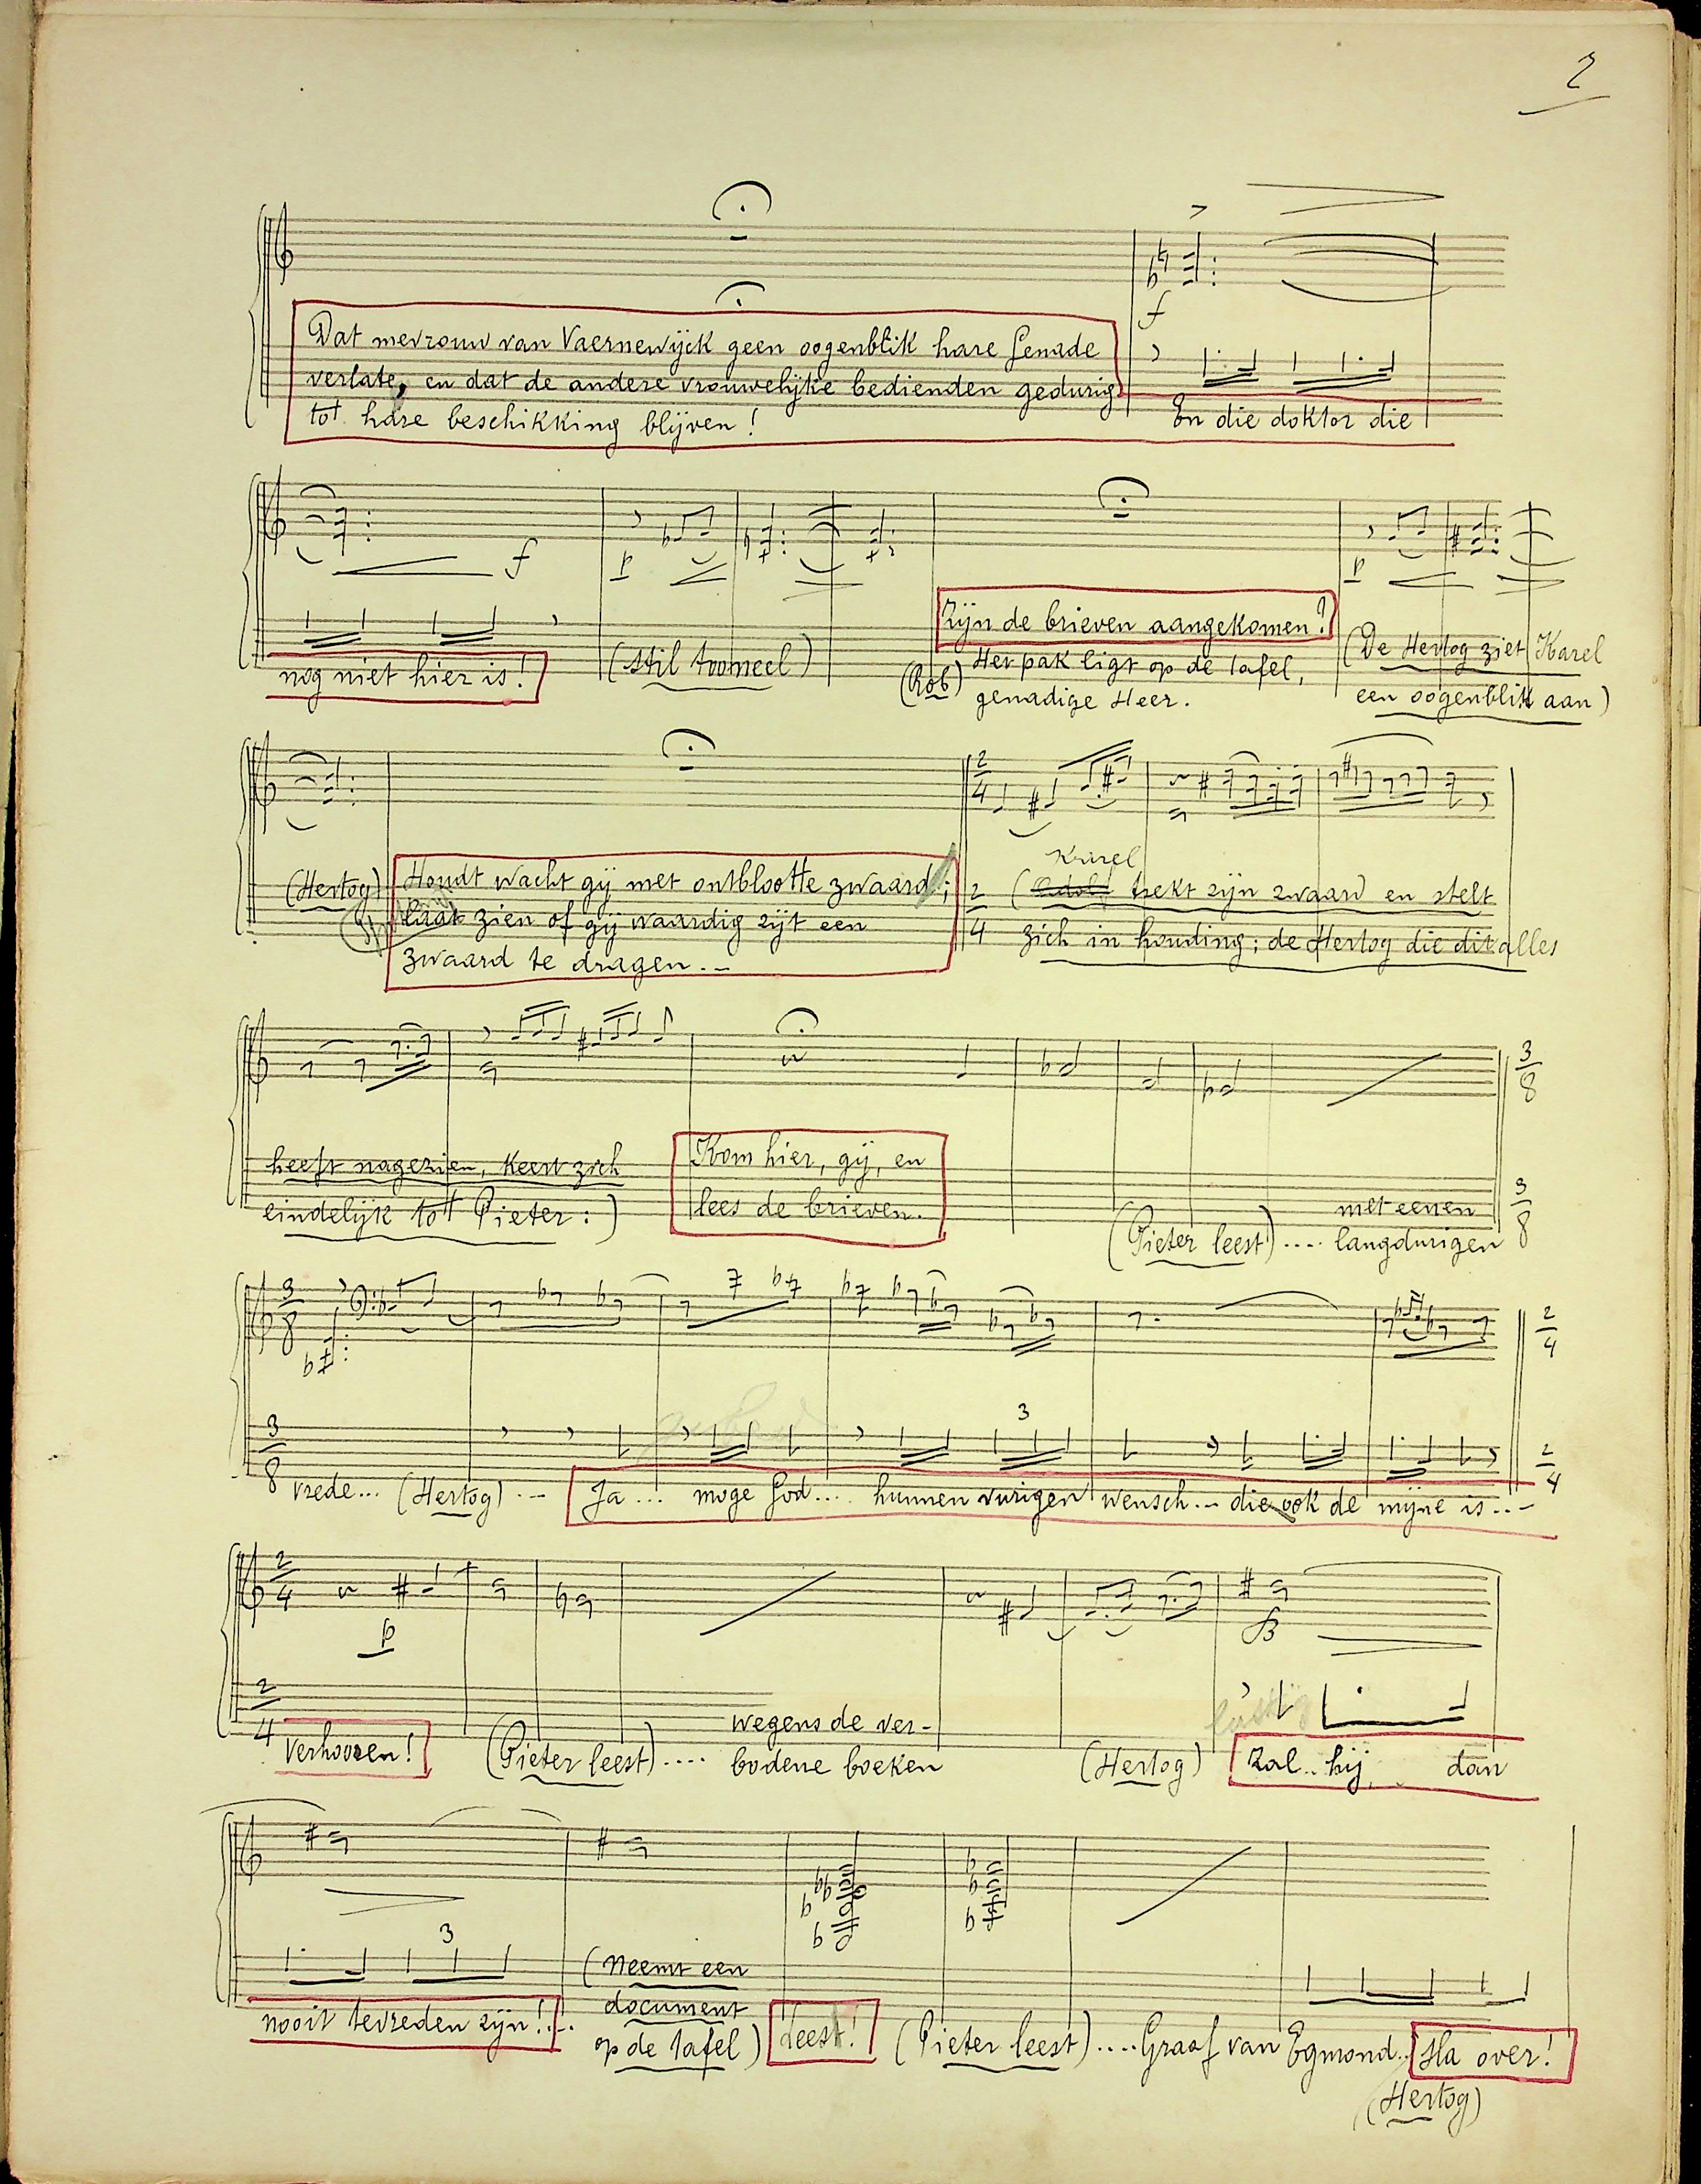 2
Dat mevrouw van Vaernewijck geen oogenblik hare Genade
verlate, en dat de andere vrouwelijke bedienden gedurig
tot hare beschikking blijven!
En die doktor die
f
f
p
p
nog niet hier is!
(stil tooneel)
Zijn de brieven aangekomen?
(Rob) Het pak ligt op de tafel,
genadige Heer.
(De Hertog ziet Karel
een oogenblik aan)
(Hertog)
Houdt wacht gij met ontblootte zwaard;
laat zien of gij waardig zijt een
zwaard te dragen.--
2 4
Karel
trekt zijn zwaard en stelt
zich in houding; de Hertog die dit alles
2 4
heeft nagezien, keert zich
eindelijk tot Pieter:)
Kom hier, gij, en
lees de brieven.
3 8
(Pieter leest).... met eenen
langdurigen
3 8
3 8
2 4
3
3 8
vrede... (Hertog).-- Ja... moge God.... hunnen vurigen wensch.-- die ook de mijne is..--
2 4
2 4
p
2 4
Verhooren!
(Pieter leest)....
wegens de ver-
bodene boeken
(Hertog) Zal.. hij.. dan
3
nooit tevreden zijn!...
(Neemt een
document
op de tafel)
Leest!
(Pieter leest)....Graaf van Egmond..
Sla over!
(Hertog)